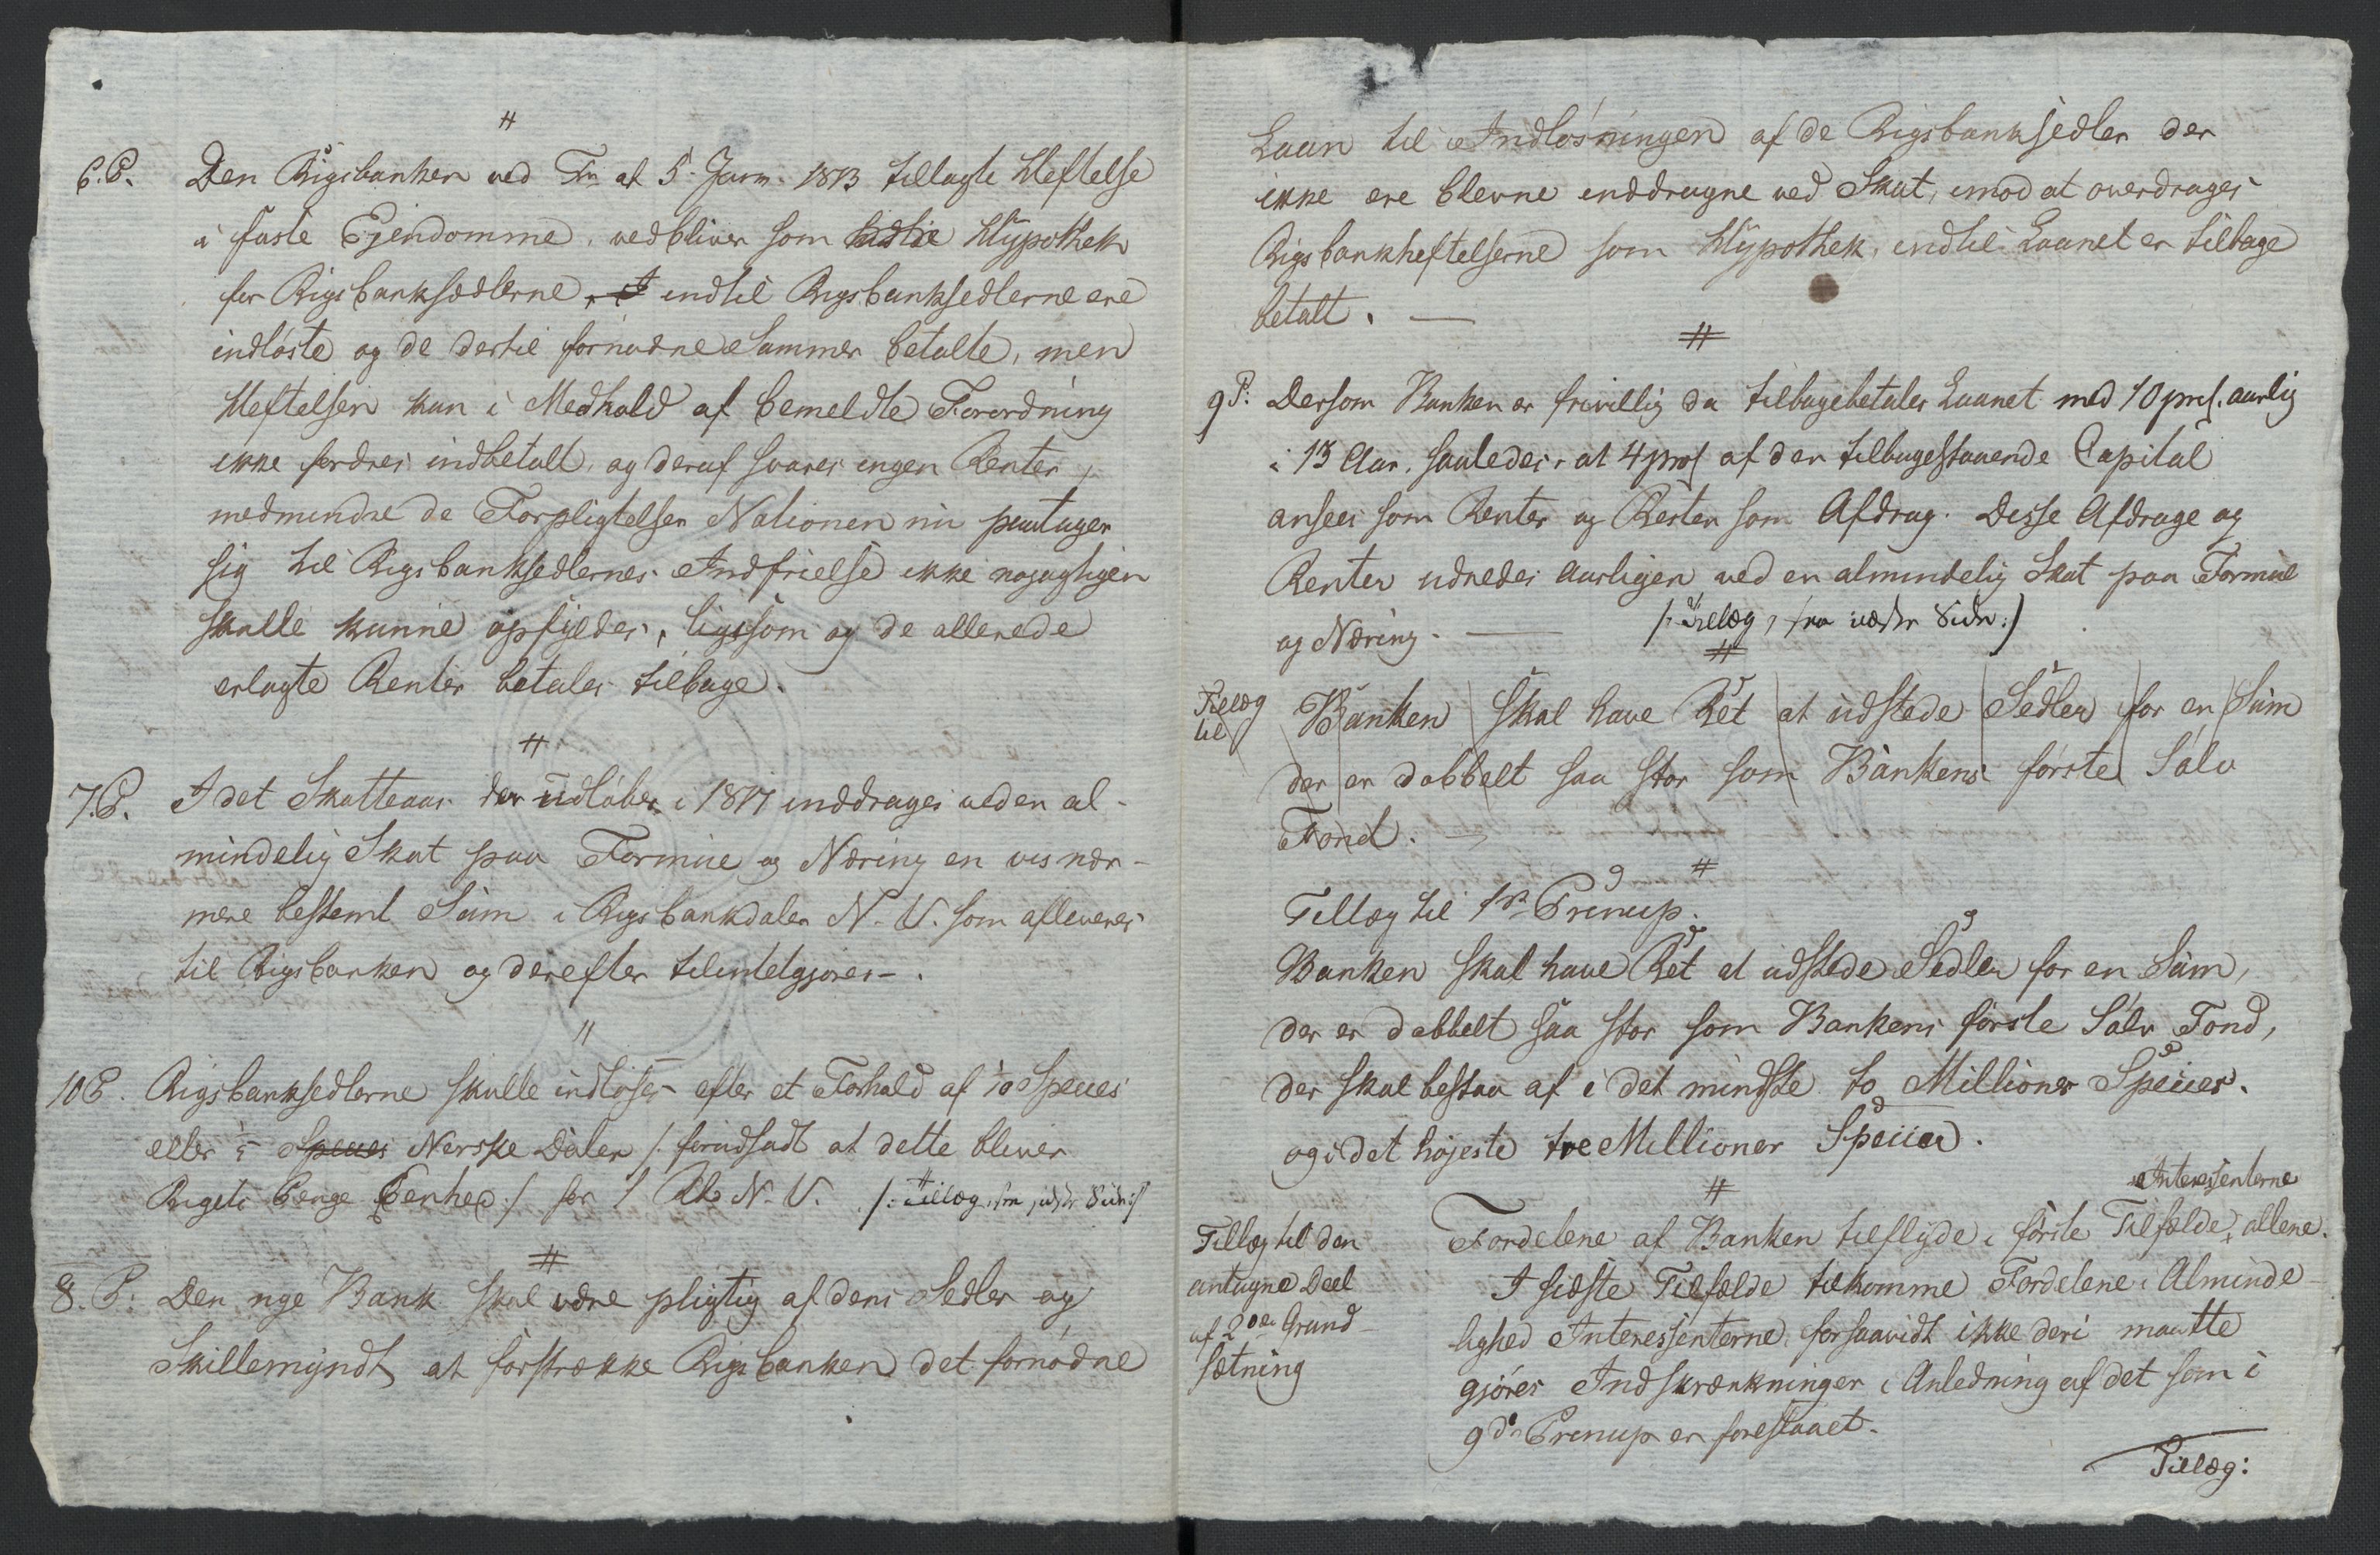 #
6. P. Den Rigsbanken ved Fn af 5. Janr. 1813 tillagte Heftelse
i faste Ejendomme, vedbliver som Hypothek
for Rigsbanksedlerne, indtil Rigsbanksedlerne ere
indløste og de dertil fornødne Summer betalte, men
Heftelsen kan i Medhold af bemeldte Forordning
ikke fordres indbetalt, og deraf svares ingen Renter,
medmindre de Forpligtelser Nationen nu paatager
sig til Rigsbanksedlernes Indfrielse ikke nøjagtigen
skulle kunne opfyldes, ligesom og de allerede
erlagte Renter betales tilbage.
#
7. P. I det Skatteaar der udløber i 1817 inddrages ved en al-
mindelig Skat paa Formue og Næring en vis nær-
mere bestemt Sum i Rigsbankdaler N. V. som afleveres
til Rigsbanken og derefter tilintetgjøres.
"
10 P. Rigsbanksedlerne skulle indløses efter et Forhold af 1/10 Species
eller i Species Norske Daler /: forudsadt at dette bliver
Rigets Penge Eenhed :/ for 1 Rb N. V. /: Tillæg, fra sidste Side :/
#
8. P: Den nye Bank skal være pligtig af dens Sedler og
Skillemyndt at forstrække Rigsbanken det fornødne
Laan til Indløsningen af de Rigsbanksedler der
ikke ere blevne inddragne ved Skat, imod at overdrages
Rigsbankheftelserne som Hypothek, indtil Laanet er tilbage
betalt. —
#
9 P: Dersom Banken er frivillig da tilbagebetales Laanet med 10 prCt. aarlig
i 13 Aar, saaledes, at 4 prCt af den tilbagestaaende Capital
ansees som Renter og Resten som Afdrag. Disse Afdrage og
Renter udredes aarligen ved en almindelig Skat paa Formue
og Næring. — /: Tillæg, fra næste Side :/
#
Tillæg
til
Banken skal have Ret at udstede Sedler for en Sum
der er dobbelt saa stor som Bankens første Sølv
Fond. —
#
Tillæg til 1ste Princip.
Banken skal have Ret at udstede Sedler for en Sum,
der er dobbelt saa stor som Bankens første Sølv Fond,
der skal bestaa af i det mindste to Millioner Species.
og i det højeste tre Millioner Species.
#
Interessenterne
Tillæg til den
antagne Deel
af 2den Grund-
sætning
Fordelene af Banken tilflyde i første Tilfælde, allene.
I sidste Tilfælde tilkomme Fordelene i Alminde-
lighed Interessenterne, forsaavidt ikke deri maatte
gjøres Indskrænkninger i Anledning af det som i
9de Princip er forestaaet.
Tillæg: